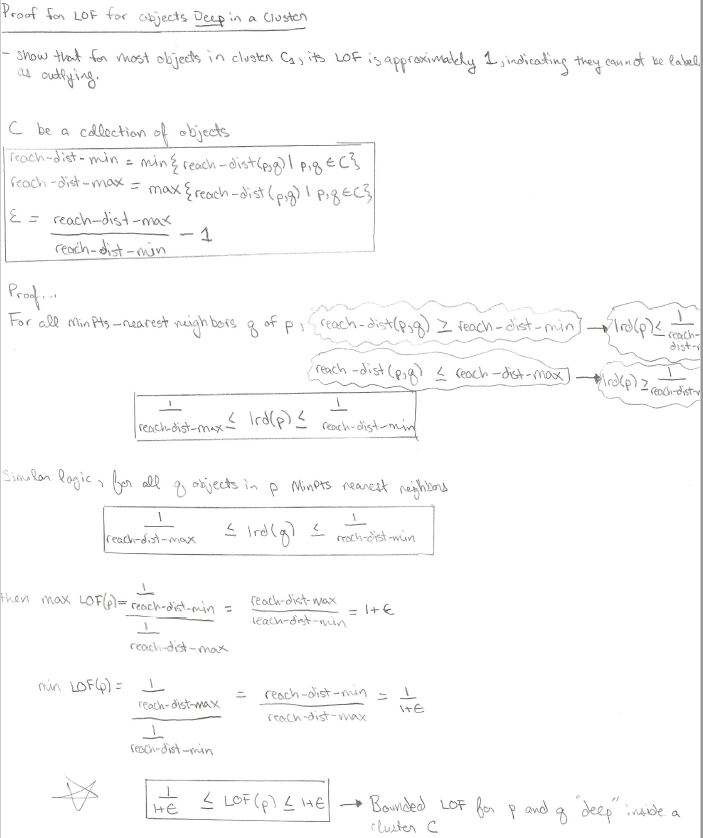 Proof for LOF for objects Deep in a Cluster
- show that for most objects in cluster C1, its LOF is approximately 1, indicating they cannot be label
as outlying.
C be a collection of objects
reach-dist-min = min{reach-dist(p,q) | p,q ∈ C}
reach-dist-max = max{reach-dist(p,q) | p,q ∈ C}
ε = reach-dist-max / reach-dist-min - 1
Proof...
For all MinPts-nearest neighbors q of p, {reach-dist(p,q) ≥ reach-dist-min} → lrd(p) ≤ 1 / reach-dist-
{reach-dist(p,q) ≤ reach-dist-max} → lrd(p) ≥ 1 / reach-dist-
1 / reach-dist-max ≤ lrd(p) ≤ 1 / reach-dist-min
Similar logic, for all q objects in p MinPts nearest neighbors
1 / reach-dist-max ≤ lrd(q) ≤ 1 / reach-dist-min
then max LOF(p) = (1 / reach-dist-min) / (1 / reach-dist-max) = reach-dist-max / reach-dist-min = 1+ε
min LOF(p) = (1 / reach-dist-max) / (1 / reach-dist-min) = reach-dist-min / reach-dist-max = 1 / 1+ε
1 / 1+ε ≤ LOF(p) ≤ 1+ε → Bounded LOF for p and q "deep" inside a
cluster C